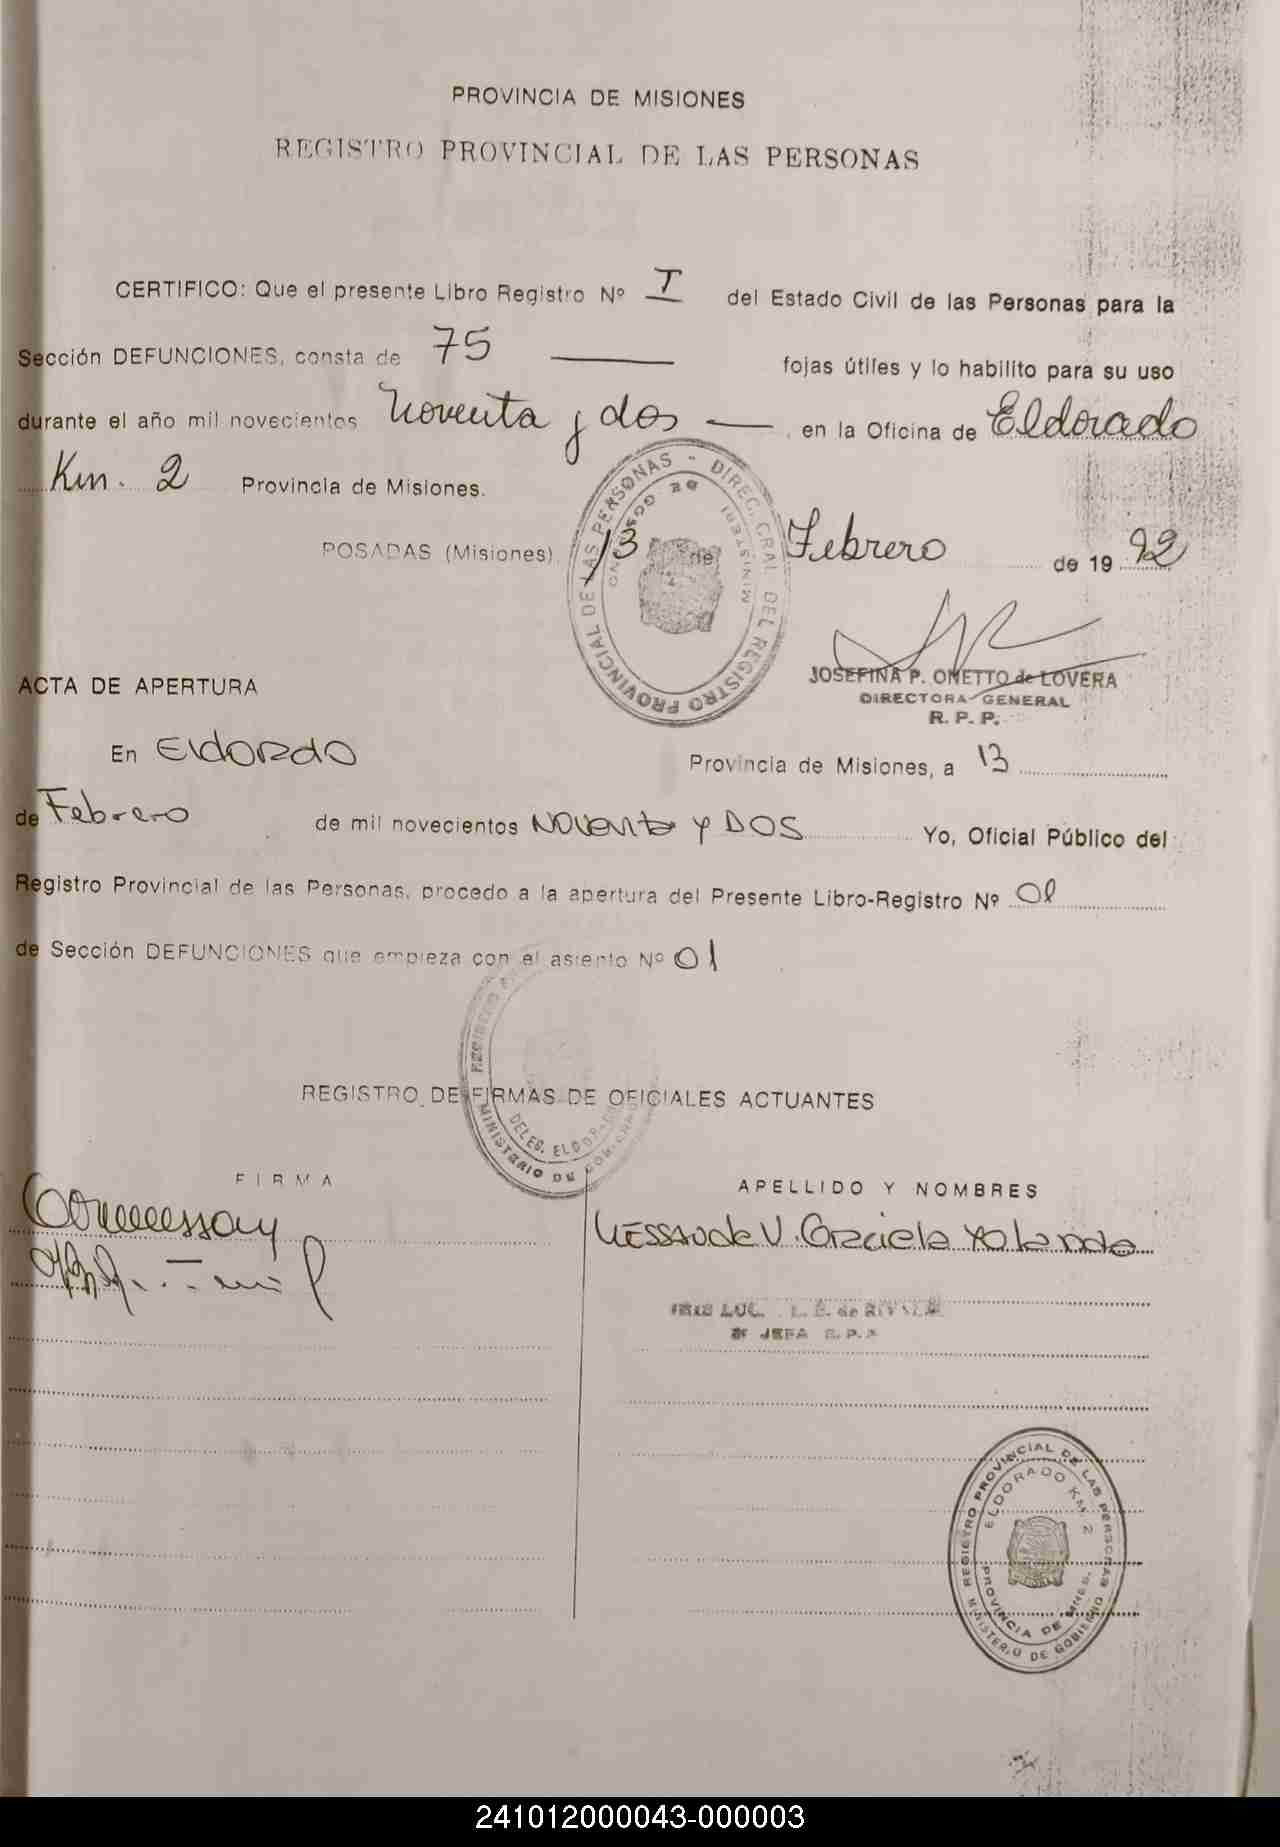 PROVINCIA DE MISIONES
REGISTRO PROVINCIAL DE LAS PERSONAS
CERTIFICO: Que el presente Libro Registro Nº I del Estado Civil de las Personas para la
Sección DEFUNCIONES, consta de 75 — fojas útiles y lo habilito para su uso
durante el año mil novecientos Noventa y dos — , en la Oficina de Eldorado
Km. 2 Provincia de Misiones.
POSADAS (Misiones), 13 de Febrero de 19 92
DIREC. GRAL. DEL REGISTRO PROVINCIAL DE LAS PERSONAS -
JOSEFINA P. ONETTO de LOVERA
DIRECTORA GENERAL
R. P. P.
ACTA DE APERTURA
En Eldordo Provincia de Misiones, a 13
de Febrero de mil novecientos Noventa y DOS Yo, Oficial Público del
Registro Provincial de las Personas, procedo a la apertura del Presente Libro-Registro Nº 01
de Sección DEFUNCIONES que empieza con el asiento Nº 01
REGISTRO DE FIRMAS DE OFICIALES ACTUANTES
MINISTERIO DE
FIRMA
APELLIDO Y NOMBRES
de V. Graciela Yolanda
de
JEFA R.P.P.
REGISTRO PROVINCIAL DE LAS PERSONAS
ELDORADO KM. 2
PROVINCIA DE MNES.
MINISTERIO DE GOBIERNO
241012000043-000003